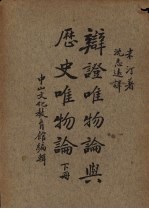 米汀著
沈志远譯
辯證唯物論與
歷史唯物論
下册
中山文化教育館編輯